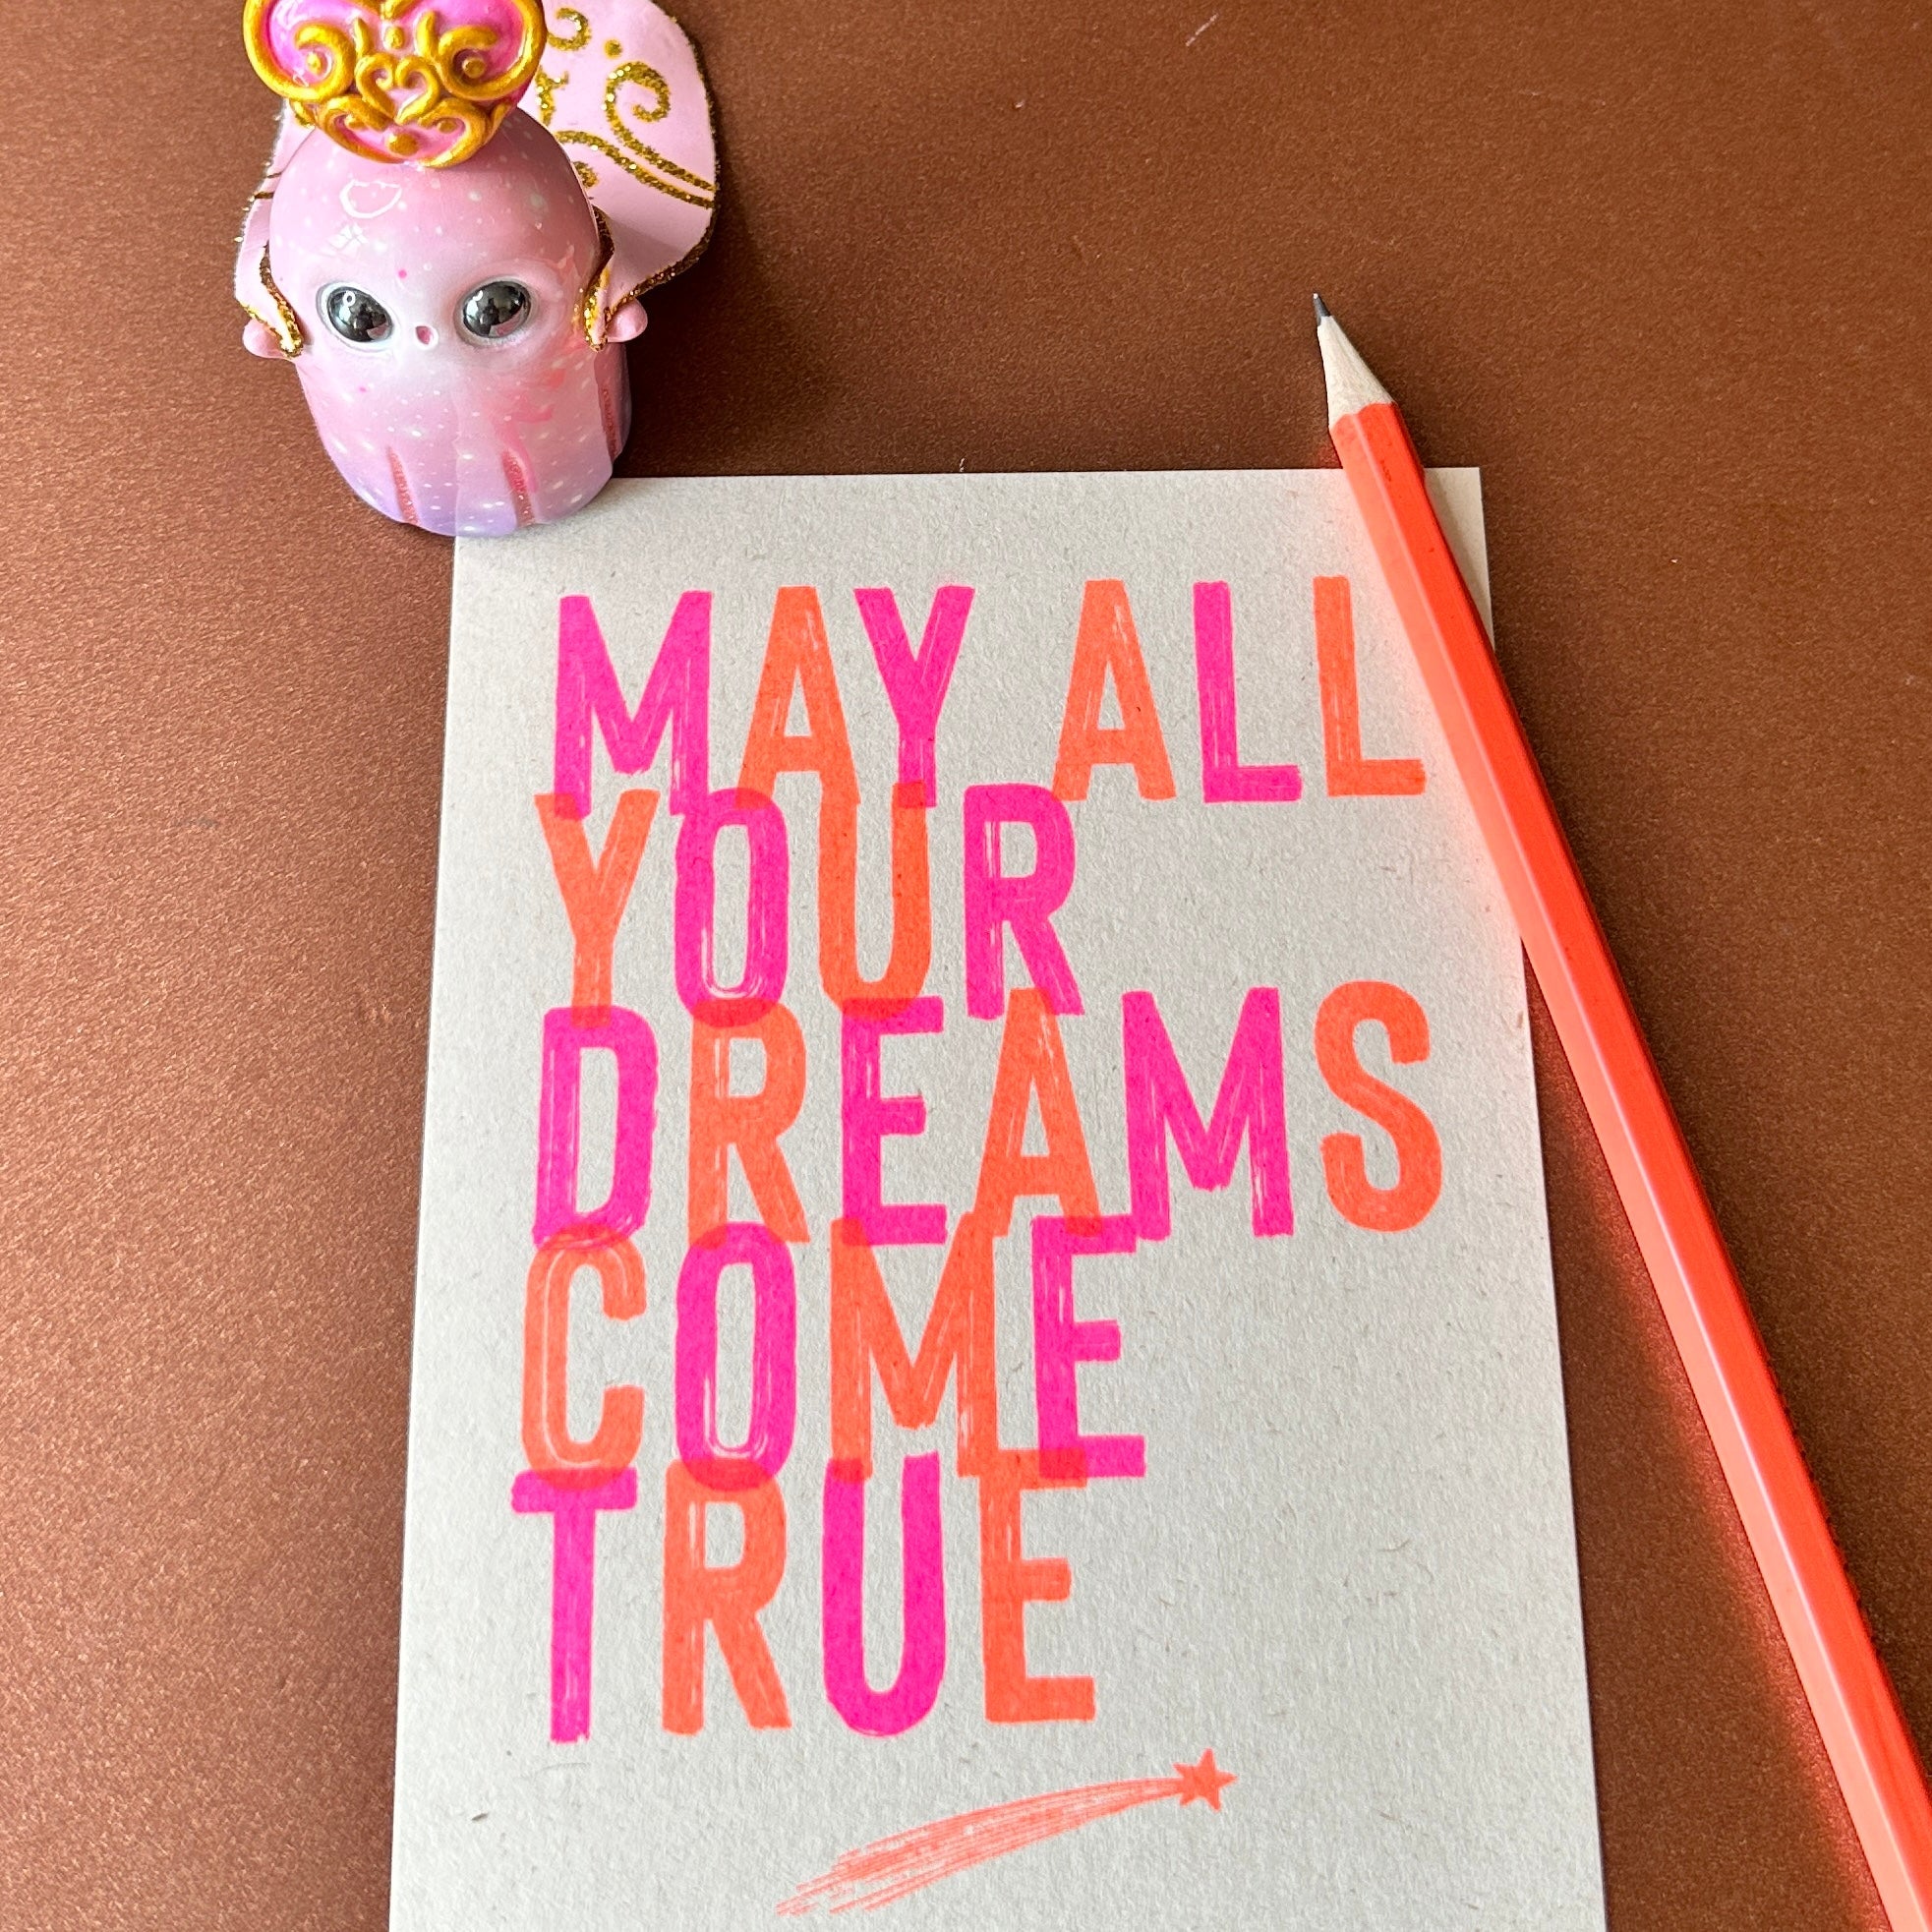 MAY ALL
YOUR
DREAMS
COME
TRUE